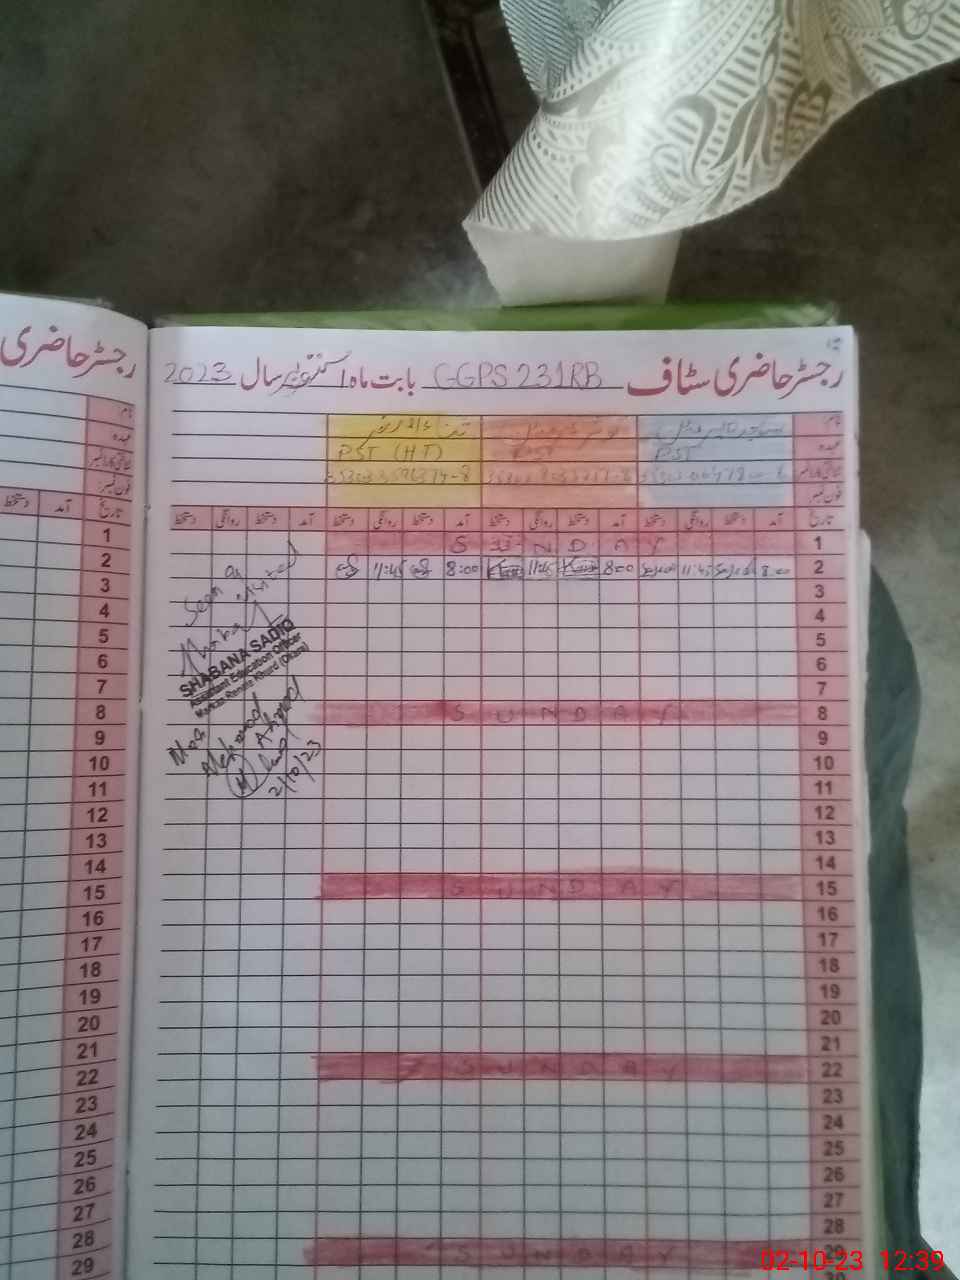 رجسٹر حاضری
رجسٹر حاضری سٹاف GGPS 231RB بابت ماہ اکتوبر سال 2023
نام
عہدہ PST PST PST (HT)
شناختی کارڈ نمبر
فون نمبر:
تاریخ آمد دستخط روانگی دستخط آمد دستخط روانگی دستخط آمد دستخط روانگی دستخط آمد دستخط روانگی دستخط
1 SUNDAY 1
2 11:45 8:00 11:45 8:00 11:45 8:00 2
3 3
4 4
5 5
6 6
7 7
8 SUNDAY 8
9 9
10 10
11 11
12 12
13 13
14 14
15 SUNDAY 15
16 16
17 17
18 18
19 19
20 20
21 21
22 SUNDAY 22
23 23
24 24
25 25
26 26
27 27
28 28
29 SUNDAY 29
30
Seen
Visited
SHABANA SADIQ
Assistant Education Officer
Markaz Renala Khurd (Okara)
Ahmad
2/10/23
02-10-23 12:39